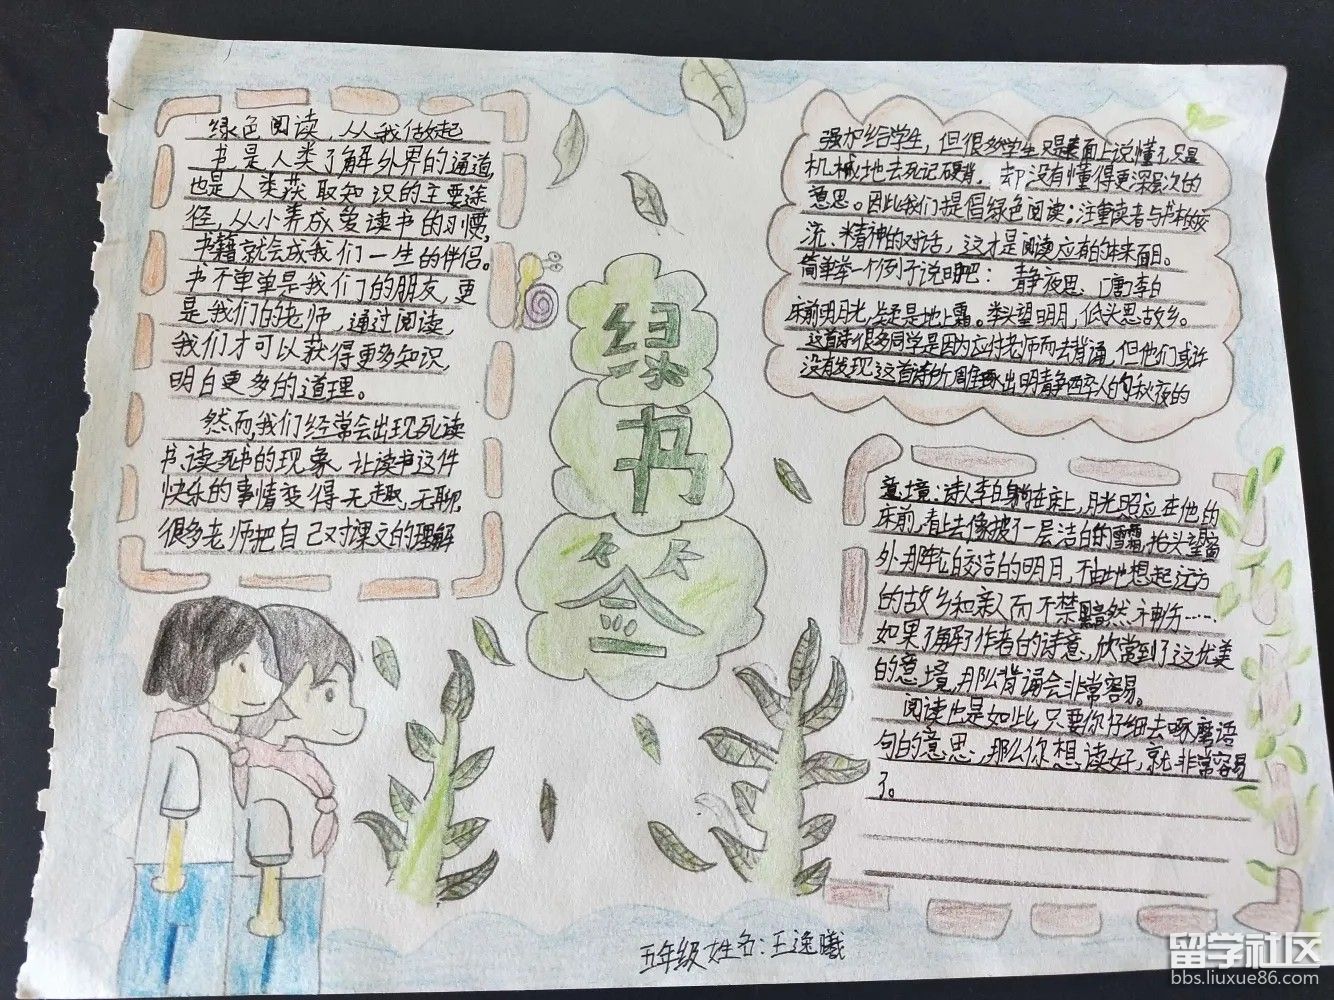 绿色阅读，从我做起
书是人类了解外界的通道，
也是人类获取知识的主要途
径，从小养成爱读书的习惯，
书籍就会成我们一生的伴侣。
书不单单是我们的朋友，更
是我们的老师，通过阅读，
我们才可以获得更多知识，
明白更多的道理。
然而，我们经常会出现死读
书、读死书的现象，让读书这件
快乐的事情变得无趣、无聊，
很多老师把自己对课文的理解
绿
书
签
强加给学生，但很多学生只是表面上说懂了，只是
机械地去死记硬背，却没有懂得更深层次的
意思。因此我们提倡绿色阅读；注重读者与书本的交
流、精神的对话，这才是阅读应有的本来面目。
简单举一个例子说明吧：静夜思、[唐]李白
床前明月光，疑是地上霜。举头望明月，低头思故乡。
这首诗很多同学是因为应付老师而去背诵，但他们或许
没有发现这首诗所雕琢出明静醉人的秋夜的
意境：诗人李白躺在床上，月光照应在他的
床前，看上去像披了一层洁白的雪霜，抬头望窗
外那轮皎洁的明月，不由地想起远方
的故乡和亲人而不禁黯然神伤……
如果了解了作者的诗意、欣赏到了这优美
的意境，那么背诵会非常容易。
阅读也是如此，只要你仔细去啄磨语
句的意思，那么你想读好，就非常容易
了。
五年级 姓名：王逸曦
留学社区
bbs.liuxue86.com